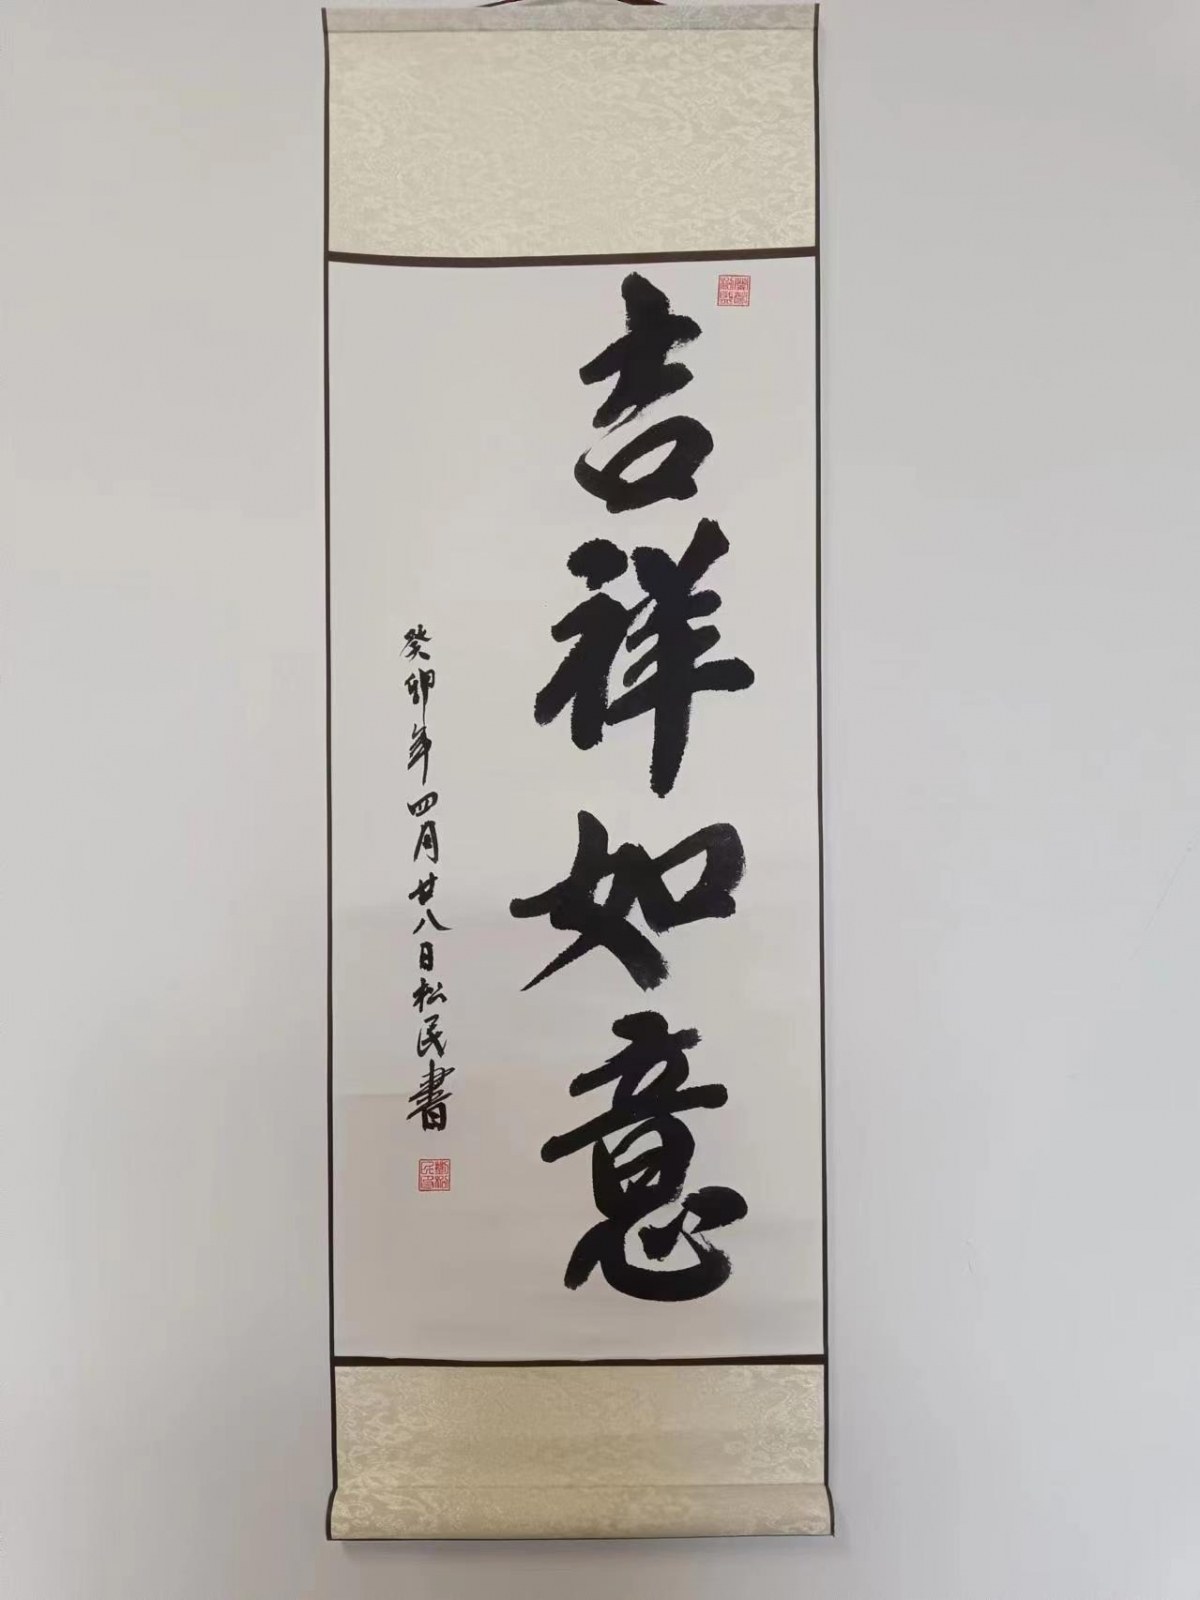 吉祥如意
癸卯年四月廿八日松民書